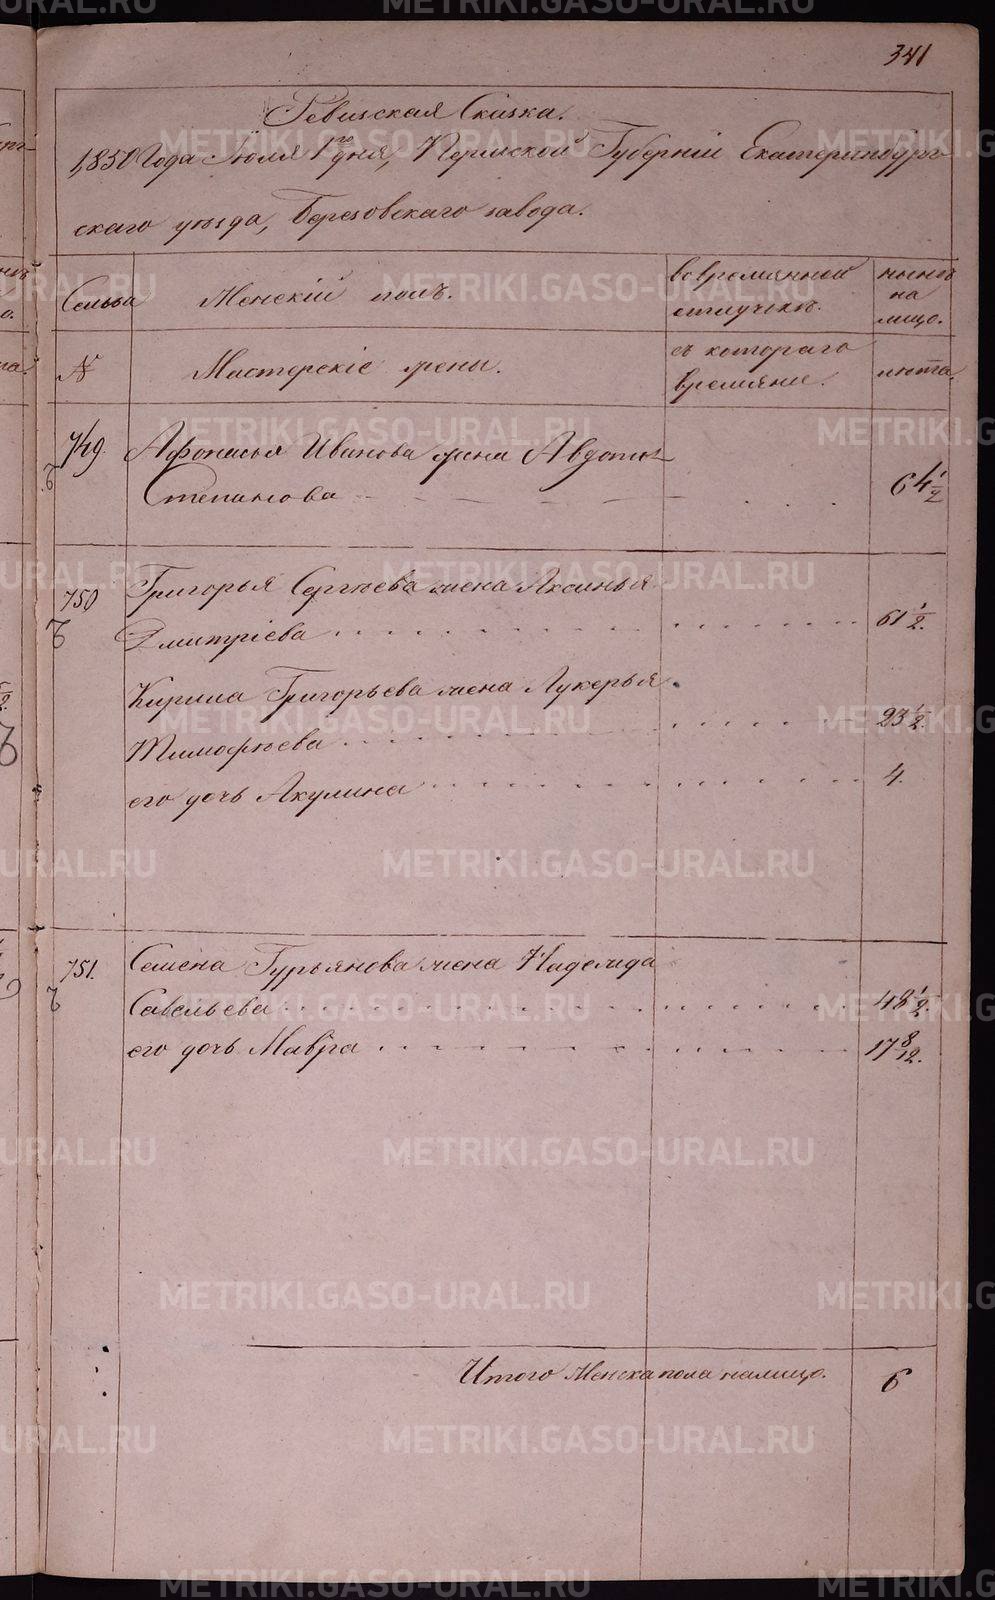 341
Ревизская Сказка.
1850 Года Июля 1го дня, Пермской Губерніи Екатеринбург-
скаго уѣзда, Березовскаго завода.
Семья
Женскій полъ.
во временной отлучкѣ.
нынѣ на лицо.
№
Мастерскіе жены.
съ котораго времяни.
лѣта.
749. Афонасья Иванова жена Авдотья
Степанова 64 1/2
750 Григорья Сергѣева жена Аксинья
Дмитріева 61 1/2.
Кирила Григорьева жена Лукерья
Тимофѣева 23 1/2
его дочь Акулина 4.
751. Семена Гурьянова жена Надежда
Савельева 48 1/2.
его дочь Мавра 17 8/12.
Итого Женска пола налицо. 6
METRIKI.GASO-URAL.RU